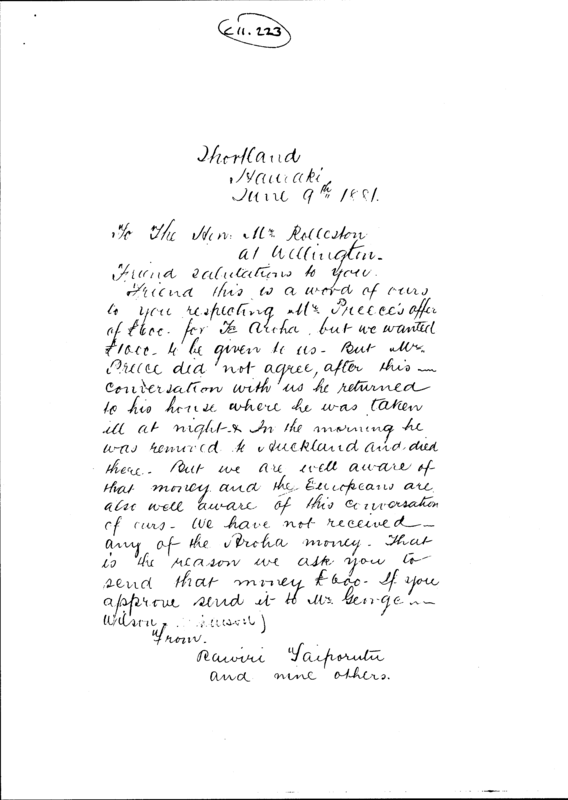 C 11. 223
Shortland
Hauraki
June 9th 1881.
To The Hon. Mr Rolleston
at Wellington.
Friend salutations to you.
Friend this is a word of ours
to you respecting Mr Preece's offer
of £600. for Te Aroha, but we wanted
£1000. to be given to us. But Mr.
Preece did not agree, after this
conversation with us he returned
to his house where he was taken
ill at night & In the morning he
was removed to Auckland and died
there. But we are well aware of
that money and the Europeans are
also well aware of this conversation
of ours. We have not received
any of the Aroha money. That
is the reason we ask you to
send that money £600. If you
approve send it to Mr. George
Wilson.
From.
Rawiri Taiporutu
and nine others.